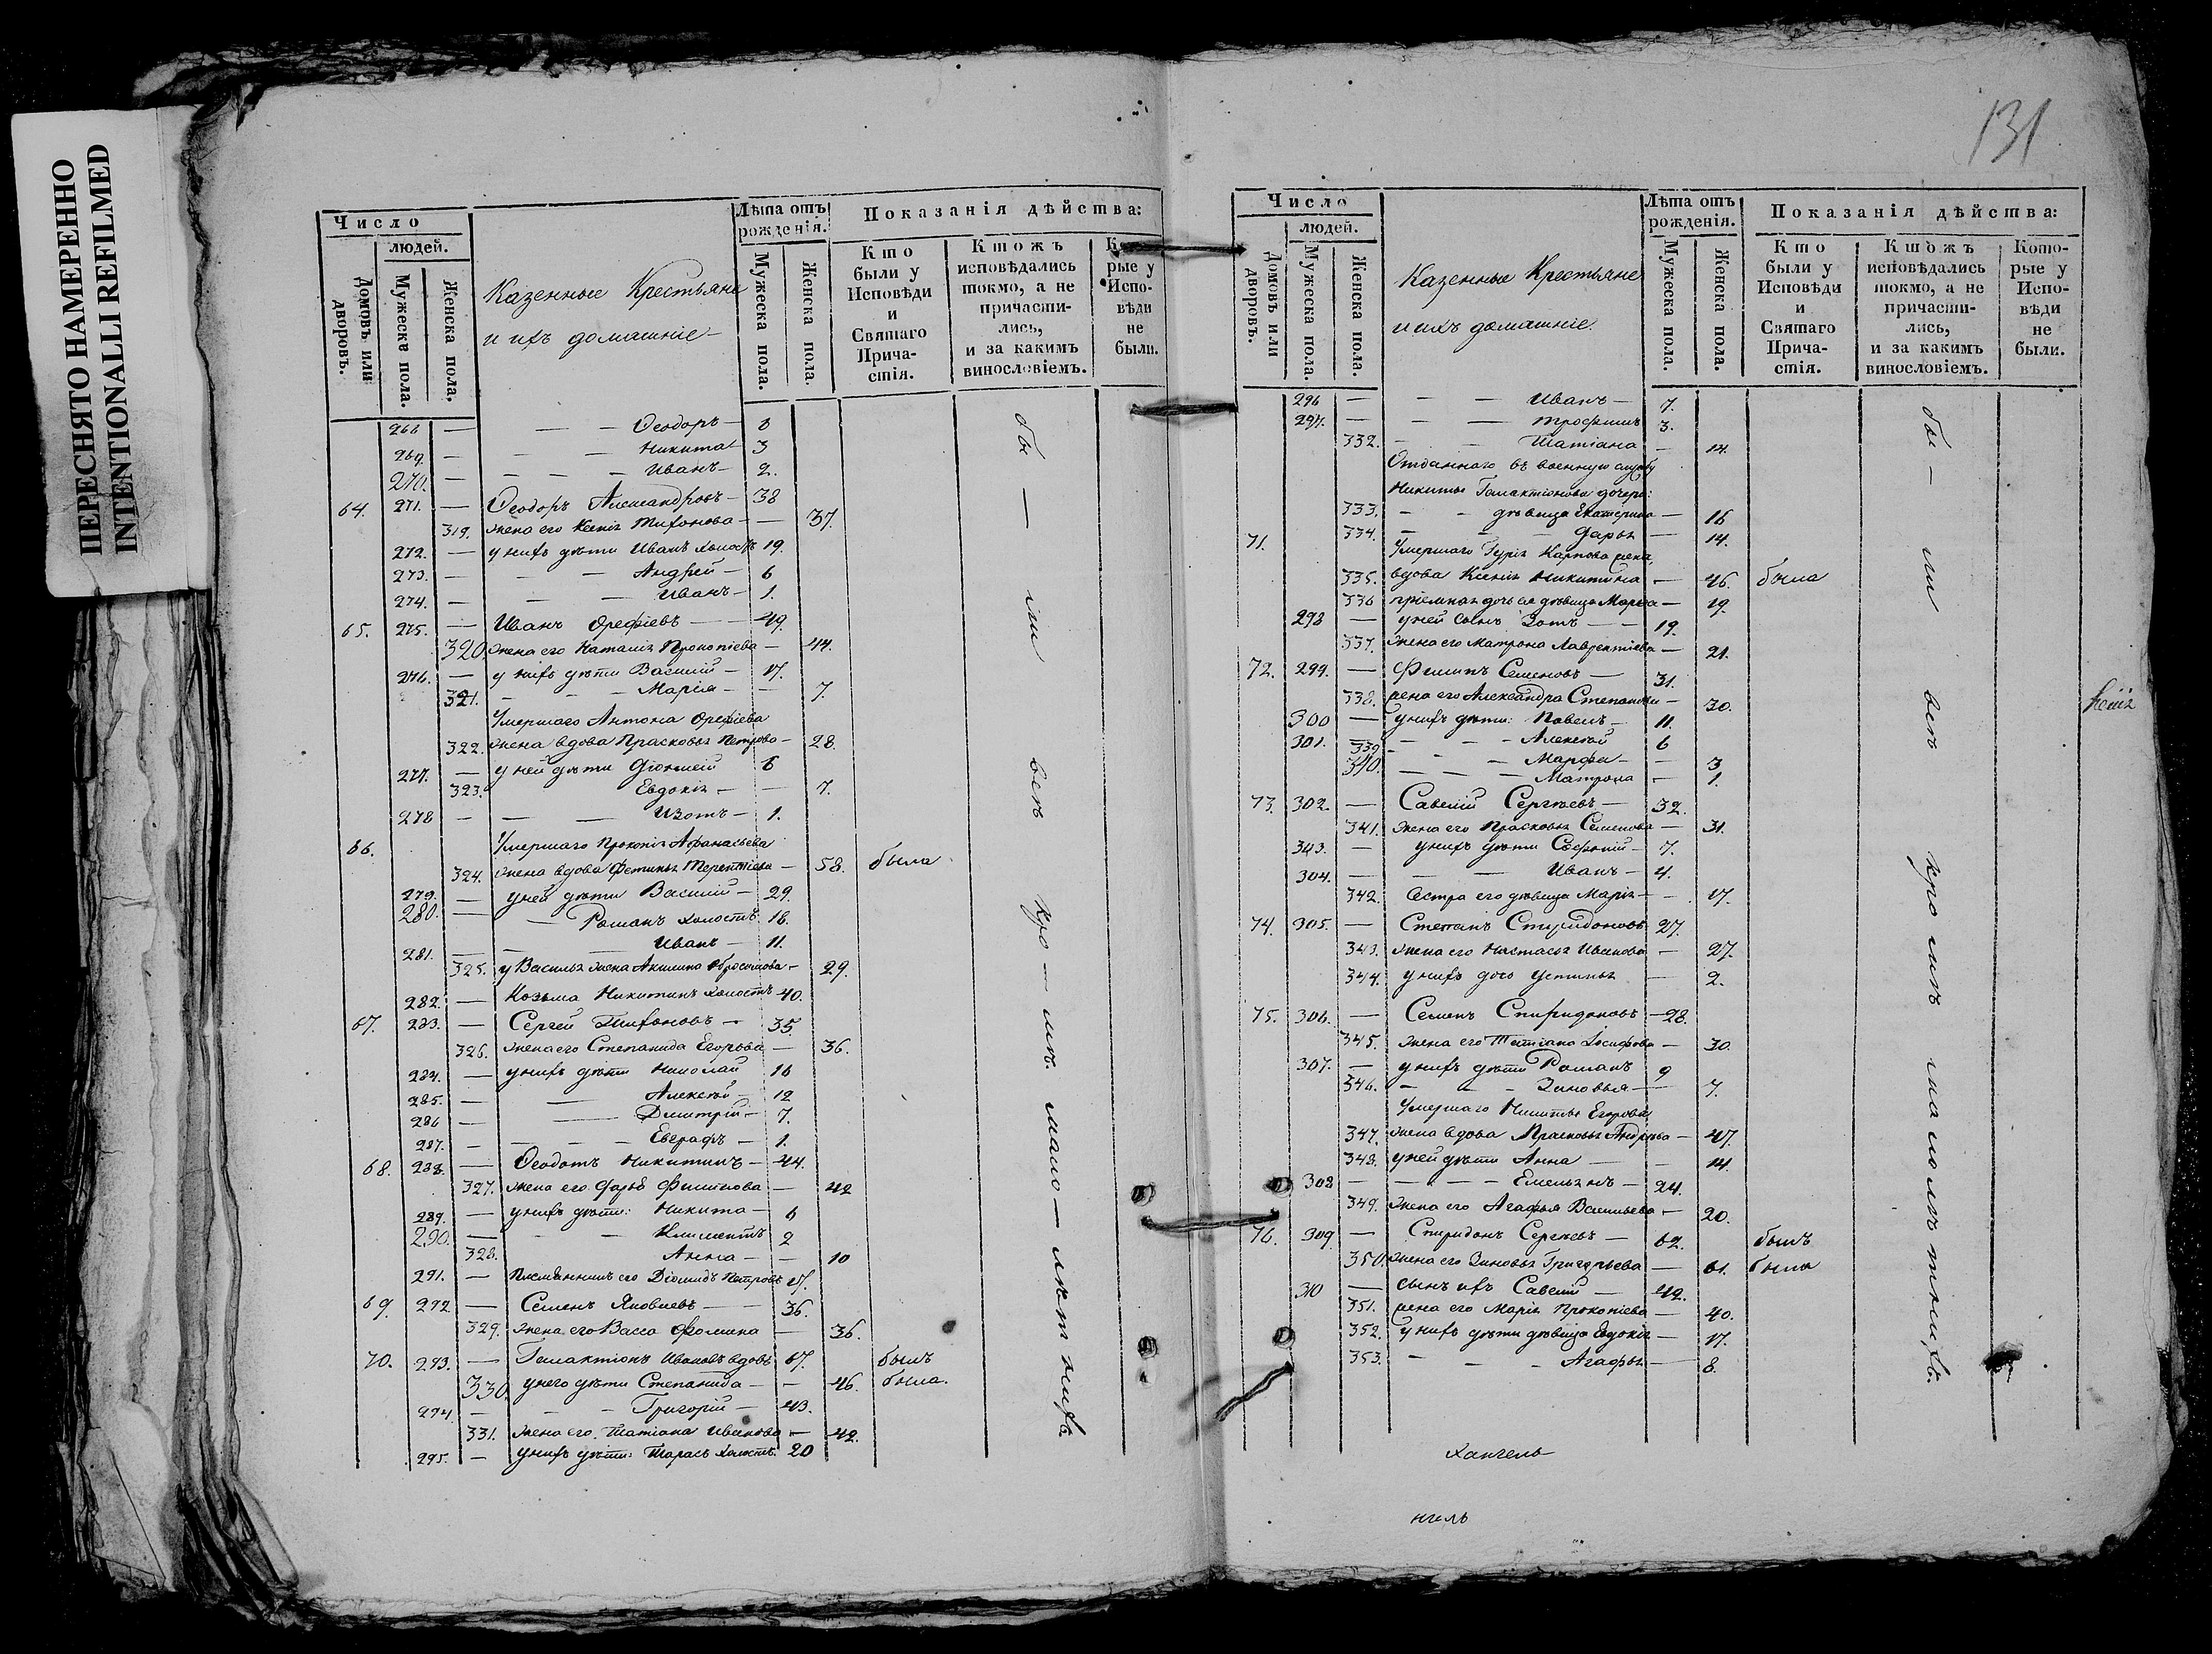 ПЕРЕСНЯТО НАМЕРЕННО
INTENTIONALLI REFILMED
Число
людей.
Домовъ или дворовъ.
Мужеска пола.
Женска пола.
Казенные Крестьяне
и ихъ домашніе
Лѣта отъ рожденія.
Мужеска пола.
Женска пола.
Показанія дѣйства:
Кто были у Исповѣди и Святаго Причастія.
Ктожъ исповѣдались токмо, а не причастились, и за какимъ винословіемъ.
рые у Исповѣди не были.
268 — — — Ѳеодоръ —
269. — — — Никита 3
270. — — — — Иванъ — 2.
64. 271. — Ѳеодоръ Александровъ — 38
319. жена его Ксенія Тихонова — — 37.
272. — у нихъ дѣти Иванъ холостъ 19.
273. — — — Андрей — 6
274. — — — Иванъ — 1.
65. 275. — Иванъ Орефіевъ — — 49.
320. жена его Наталія Прокопіева — 44.
276. — у нихъ дѣти Василій — 17.
321. — — — Марія — — 7.
Умершаго Антона Орефіева
322. жена вдова Прасковья Петрова — 28.
277. — у ней дѣти 6
323. Евдокія — — 7.
278 — — — Изотъ — 1.
66. Умершаго Прокопія Афанасьева
324. жена вдова Фетинья Терентіева — 58. была
279. — у ней дѣти Василій — 29.
280. — — Романъ холостъ 16.
281. — — — Иванъ — 11.
325. у Василья жена Акилина Абросимова — 29.
282. — Козьма Никитинъ холостъ 40.
67. 283. — Сергей Тихоновъ — 35.
326. жена его Степанида Егорова — 36.
284. — у нихъ дѣти Николай 16
285. — — Алексѣй — 12
286 — — Дмитрій — 7.
287. — — — — Евграфъ — 1.
68. 288. — Ѳеодотъ Никитинъ — 44.
327. жена его Дарья Филипова — 42
289. — у нихъ дѣти: Никита — 6
290. — — — Климентъ 2
328. Анна — — 10
291. — племянникъ его Діомидъ Петровъ 27.
69. 292 — Семенъ Яковлевъ — — 36.
329. жена его Васса Фомина — 36.
70. 293. — Галактіонъ Ивановъ вдовъ 67. былъ
330. у него дѣти Степанида — — 46. была.
294. — — — Григорій — 43.
331. жена его Татіана Иванова — 42.
295. — у нихъ дѣти: Тарасъ холостъ. 20
бы — ли все кро — мѣ. мало — лѣтнихъ
131
Число
людей.
Домовъ или дворовъ.
Мужеска пола.
Женска пола.
Казенные Крестьяне
и ихъ домашніе.
Лѣта отъ рожденія.
Мужеска пола.
Женска пола.
Показанія дѣйства:
Кто были у Исповѣди и Святаго Причастія.
Ктожъ исповѣдались токмо, а не причастились, и за какимъ винословіемъ.
Которые у Исповѣди не были.
296 — — — Иванъ — 7.
297. — — — Трофимъ 3.
332. — — Татіана — 14.
Отданнаго въ военную службу
Никиты Галактіонова дочери:
333. — — дѣвица Екатерина — 16
334. — — — Дарья — 14.
71. Умершаго Гурія Карпова жена,
335. вдова Ксенія Никитина — 46. была
336 пріемная дочь ея дѣвица Марѳа — 19.
298 — у ней сынъ Зотъ — — 19.
337. жена его Матрона Лаврентіева — 21.
72. 299. — Филипъ Семеновъ — 31.
338. жена его Александра Степанова — 30.
300 — у нихъ дѣти: Павелъ — 11.
301. — — — Алексѣй 6
339. — — — Марфа — — 3
340. — — — Матрона — 1.
73. 302. — Савелій Сергѣевъ — 32.
341. жена его Прасковья Семенова — 31.
343. — у нихъ дѣти 7.
304. — — — Иванъ — 4.
342. Сестра его дѣвица Марія — — 17.
74. 305. — Степанъ Спиридоновъ 27.
343. жена его Настасья Иванова — 27.
344. у нихъ дочь Устинья — 2.
75. 306. — Семенъ Спиридоновъ — 28.
345. жена его Татіана Іосифова — 30.
307. — у нихъ дѣти Романъ 9
346. — — — Зиновья — 7.
Умершаго Никиты Егорова
347. жена вдова Прасковья Андреева — 47.
348. у ней дѣти Анна — — 14.
308 — — — — Емельянъ — 24.
349. жена его Агафья Васильева — 20.
76. 309 — Спиридонъ Сергѣевъ — 62. былъ
350. жена его Зиновья Григорьева — 61. была
310 — сынъ ихъ Савелій — 42.
351. жена его Марія Прокопіева — 40.
352. у нихъ дѣти дѣвица Евдокія — 17.
353. — — — Агафья — 8.
бы — ли всѣ кромѣ малолѣтнихъ.